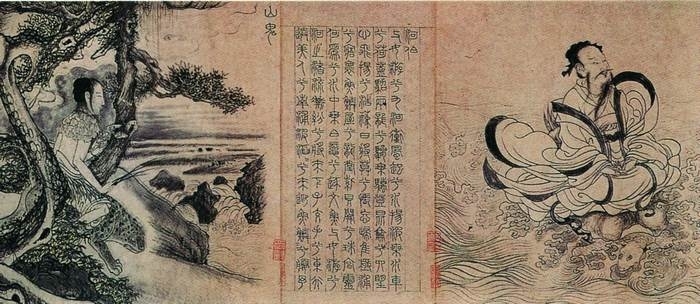 河伯
与女遊兮九河衝風起兮水揚波乘水車
兮荷蓋駕兩龍兮驂螭登崑崙兮四望
心飛揚兮浩蕩日將暮兮悵忘歸惟極浦
兮寤懷魚鱗屋兮龍堂紫貝闕兮朱宮靈
何爲兮水中乘白黿兮逐文魚與女遊兮
河之渚流澌紛兮將來下子交手兮東行
送美人兮南浦波滔滔兮來迎魚鱗鱗兮媵予
山鬼